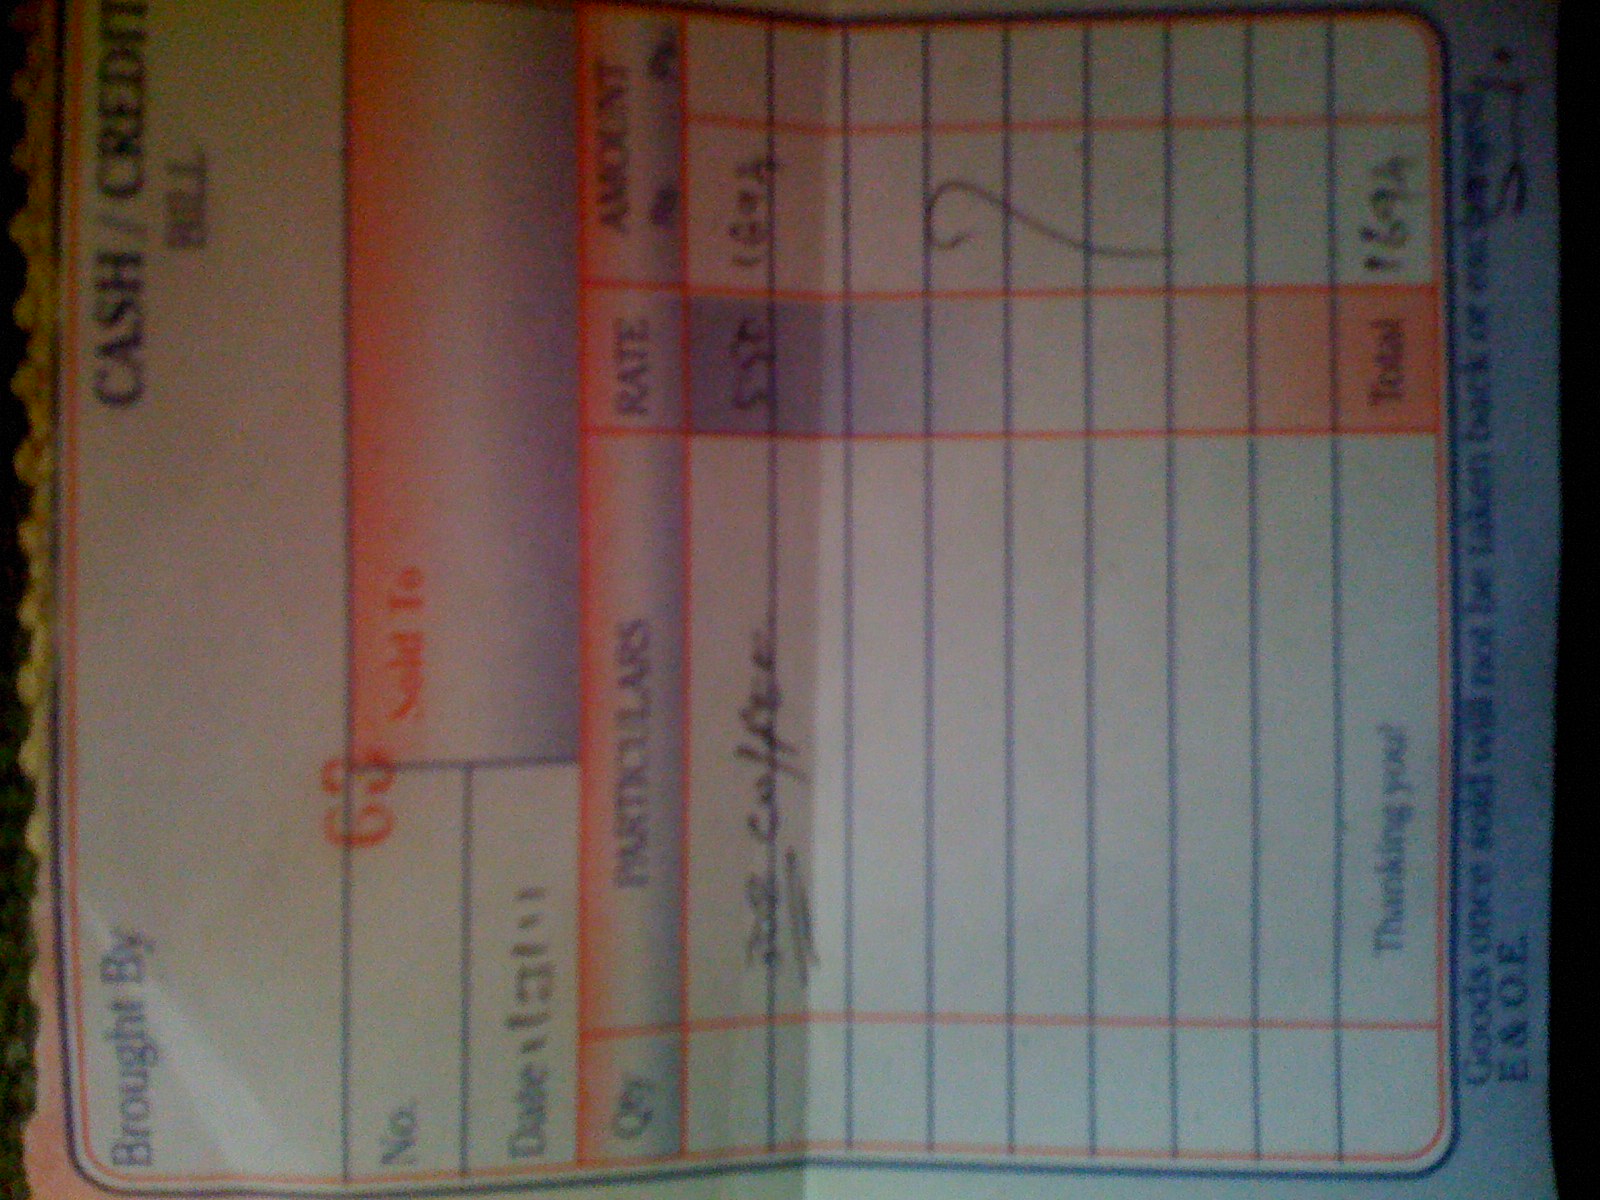 Brought By
CASH / CREDIT
BILL
No. 63
Sold To
Date
Qty PARTICULARS RATE AMOUNT
Rs. Ps.
1694
Thanking you! Total 1694
Goods once sold will not be taken back or exchanged.
E & O.E.